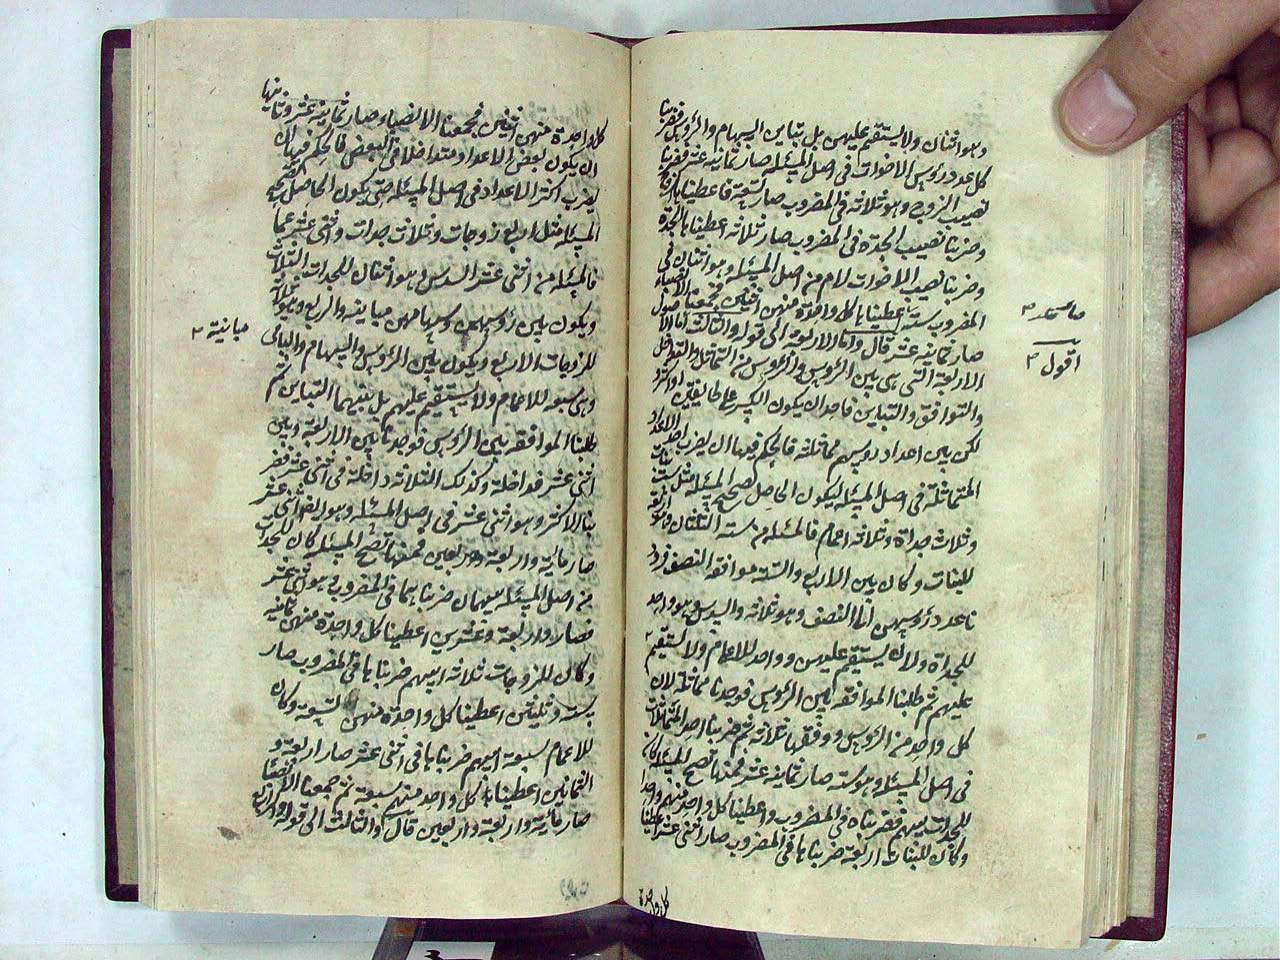 وهو اثنان ولا يستقيم عليهن بل تباين السهام والرؤس فضربنا
كل عدد رؤس الاخوات فى اصل المسئله صار ثمانيه عشر فضربنا
نصيب الزوج وهو ثلاثه فى المضروب صار تسعة فاعطينا
وضربنا نصيب الجدة فى المضروب صار ثلاثه اعطينا ها الجدة
وضربنا نصيب الاخوات لام من اصل المسئله وهو اثنان فى
المضروب سته اعطينا ها كل واحدة منهن اثنين فجمعنا الانصباء
صار ثمانيه عشر قال واما الاربعة الى قوله والثالث اما الاصول
الاربعة التى هى بين الرؤس والرؤس من التماثل والتداخل
والتوافق والتباين فاحدها ان يكون الكسر على طايفتين او اكثر
لكن بين اعداد رؤسهم مماثلة فالحكم فيها ان يضرب احد الاعداد
المتماثلة فى اصل المسئله ليكون الحاصل تصحيح المسئله مثل ست بنات
وثلاث جداة وثلاثه اعمام فالمسئله من سته الثلثان وهو اربعة
للبنات وكان بين الاربع والستة موافقه النصف فرد
نا عدد رؤسهن الى النصف وهو ثلاثه والسدس وهو واحد
للجداة ولا يستقيم عليهن وواحد للاعمام ولا يستقيم
عليهم ثم طلبنا الموافقه بين الرؤس فوجدنا مماثلة لان
كل واحد من الرؤس ووفقها ثلاثه ثم ضربنا احد المتماثلات
فى اصل المسئله وهو سته صار ثمانيه عشر فمنها تصح المسئله كان
للجدات سهم فضربناه فى المضروب واعطينا كل واحد منهم واحدا
وكان للبنات اربعة ضربنا ها فى المضروب صار اثنى عشر اعطينا
كل واحدة
اقول
كل واحدة منهن اثنين فجمعنا الانصباء صار ثمانيه عشر وثانيها
ان يكون بعض الاعداد متداخلا فى البعض فالحكم فيها ان
يضرب اكثر الاعداد فى اصل المسئله حتى يكون الحاصل تصحيح
المسئله مثل اربع زوجات وثلاث جدات واثنى عشر عما
فالمسئله من اثنى عشر السدس وهو اثنان للجدات الثلاث
ويكون بين رؤسهن وسهامهن مباينه والربع وهو ثلاثة
للزوجات الاربع ويكون بين الرؤس والسهام والباقى
وهى سبعه للاعمام ولا يستقيم عليهم بل بينهما التباين ثم
طلبنا الموافقه بين الرؤس فوجدنا بين الاربعة وبين
اثنى عشر مداخلة وكذلك الثلاثه داخلة فى اثنى عشر فضر
بنا الاكثر وهو اثنى عشر فى اصل المسئله وهو ايضا اثنى عشر
صار مائة واربعة واربعين فمنها تصح المسئله كان للجدات
من اصل المسئله سهمان ضربنا هما فى المضروب وهو اثنى عشر
فصار اربعة وعشرين اعطينا كل واحدة منهن ثمانيه
وكان للزوجات ثلاثه اسهم ضربنا ها فى المضروب صار
سته وثلثين اعطينا كل واحدة منهن تسعة وكان
للاعمام سبعة اسهم ضربنا ها فى اثنى عشر صار اربعة و
الثمانين اعطينا ها كل واحد منهم سبعة ثم جمعنا الانصباء
صار مائة واربعة واربعين قال والثالث الى قوله
مباينة